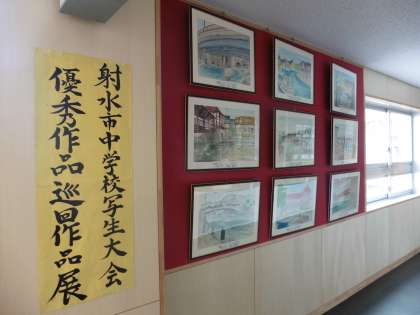 射水市中学校写生大会
優秀作品巡回作品展